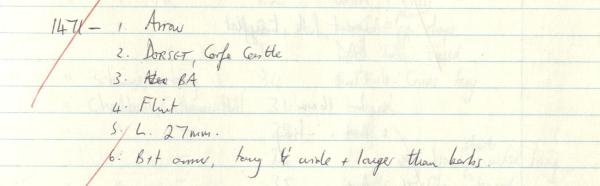 1471 - 1. Arrow
2. DORSET, Corfe Castle
3. BA
4. Flint
5. L. 27mm.
6. B+t arrow, tang & wide + longer than barbs.